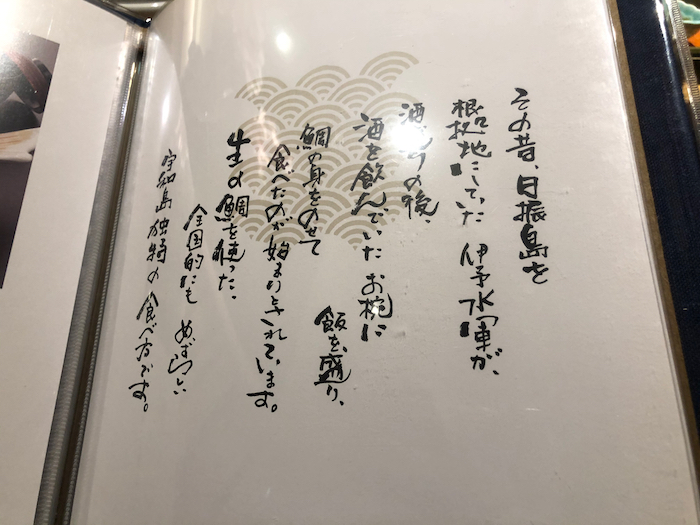 その昔、日振島を
根拠地にしていた 伊予水軍が、
酒盛りの後、
酒を飲んでいた お椀に
飯を盛り、
鯛の身をのせて
食べたのが始まりとされています。
生の鯛を使った、
全国的にも めずらしい
宇和島独特の食べ方です。